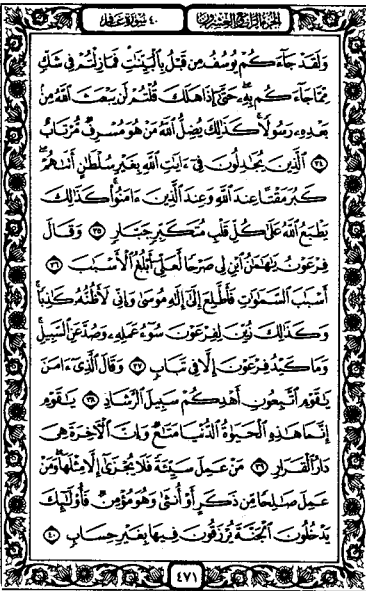 الجزء الرابع والعشرون
٤٠ سورة غافر
وَلَقَدْ جَآءَكُمْ يُوسُفُ مِن قَبْلُ بِٱلْبَيِّنَٰتِ فَمَا زِلْتُمْ فِى شَكٍّ
مِّمَّا جَآءَكُم بِهِۦ حَتَّىٰٓ إِذَا هَلَكَ قُلْتُمْ لَن يَبْعَثَ ٱللَّهُ مِنۢ
بَعْدِهِۦ رَسُولًا كَذَٰلِكَ يُضِلُّ ٱللَّهُ مَنْ هُوَ مُسْرِفٌ مُّرْتَابٌ
٣٤ ٱلَّذِينَ يُجَٰدِلُونَ فِىٓ ءَايَٰتِ ٱللَّهِ بِغَيْرِ سُلْطَٰنٍ أَتَىٰهُمْ
كَبُرَ مَقْتًا عِندَ ٱللَّهِ وَعِندَ ٱلَّذِينَ ءَامَنُوا۟ كَذَٰلِكَ
يَطْبَعُ ٱللَّهُ عَلَىٰ كُلِّ قَلْبِ مُتَكَبِّرٍ جَبَّارٍ ٣٥ وَقَالَ
فِرْعَوْنُ يَٰهَٰمَٰنُ ٱبْنِ لِى صَرْحًا لَّعَلِّىٓ أَبْلُغُ ٱلْأَسْبَٰبَ ٣٦
أَسْبَٰبَ ٱلسَّمَٰوَٰتِ فَأَطَّلِعَ إِلَىٰٓ إِلَٰهِ مُوسَىٰ وَإِنِّى لَأَظُنُّهُۥ كَٰذِبًا
وَكَذَٰلِكَ زُيِّنَ لِفِرْعَوْنَ سُوٓءُ عَمَلِهِۦ وَصُدَّ عَنِ ٱلسَّبِيلِ
وَمَا كَيْدُ فِرْعَوْنَ إِلَّا فِى تَبَابٍ ٣٧ وَقَالَ ٱلَّذِىٓ ءَامَنَ
يَٰقَوْمِ ٱتَّبِعُونِ أَهْدِكُمْ سَبِيلَ ٱلرَّشَادِ ٣٨ يَٰقَوْمِ
إِنَّمَا هَٰذِهِ ٱلْحَيَوٰةُ ٱلدُّنْيَا مَتَٰعٌ وَإِنَّ ٱلْءَاخِرَةَ هِىَ
دَارُ ٱلْقَرَارِ ٣٩ مَنْ عَمِلَ سَيِّئَةً فَلَا يُجْزَىٰٓ إِلَّا مِثْلَهَا وَمَنْ
عَمِلَ صَٰلِحًا مِّن ذَكَرٍ أَوْ أُنثَىٰ وَهُوَ مُؤْمِنٌ فَأُو۟لَٰٓئِكَ
يَدْخُلُونَ ٱلْجَنَّةَ يُرْزَقُونَ فِيهَا بِغَيْرِ حِسَابٍ ٤٠
٤٧١